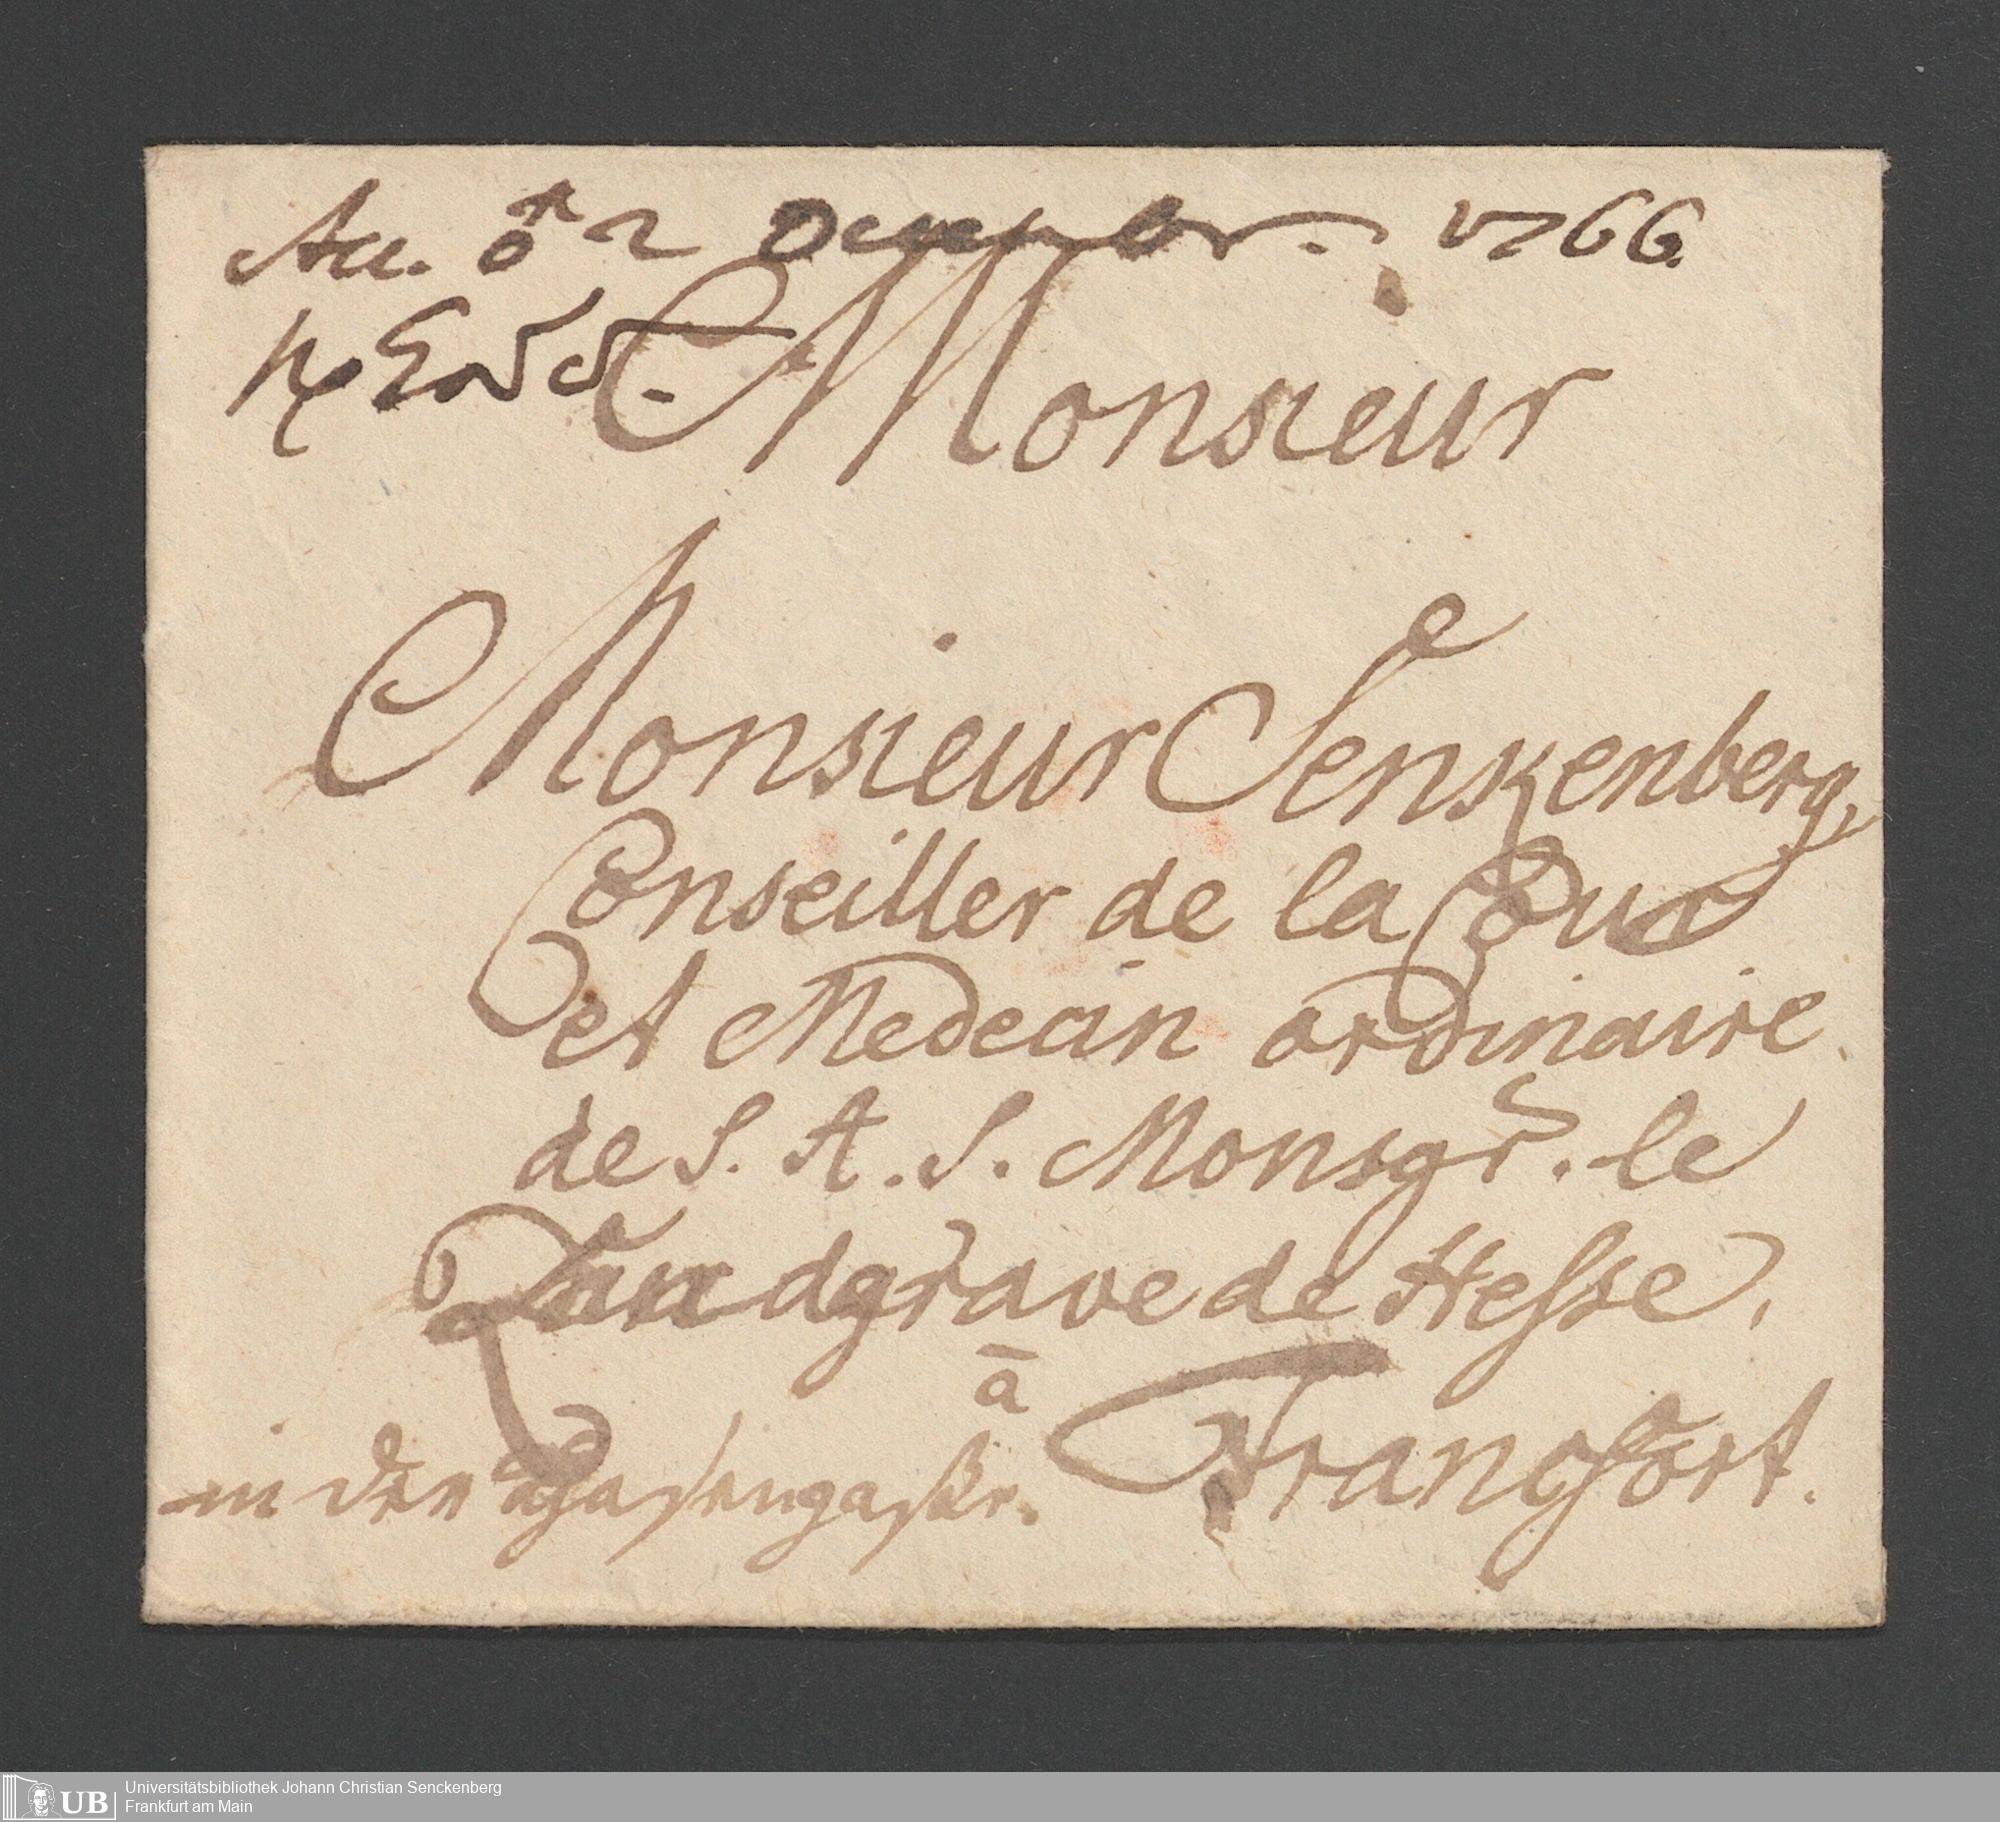 Acc. ♂ 2 Decembr. 1766.
Monsieur
Monsieur Senkenberg,
Conseiller de la Cour
et Medecin ordinaire
de S. A. S. Monsgr. le
Landgrave de Hesse,
à Francfort.
in der Hasengaße.
UB Universitätsbibliothek Johann Christian Senckenberg
Frankfurt am Main